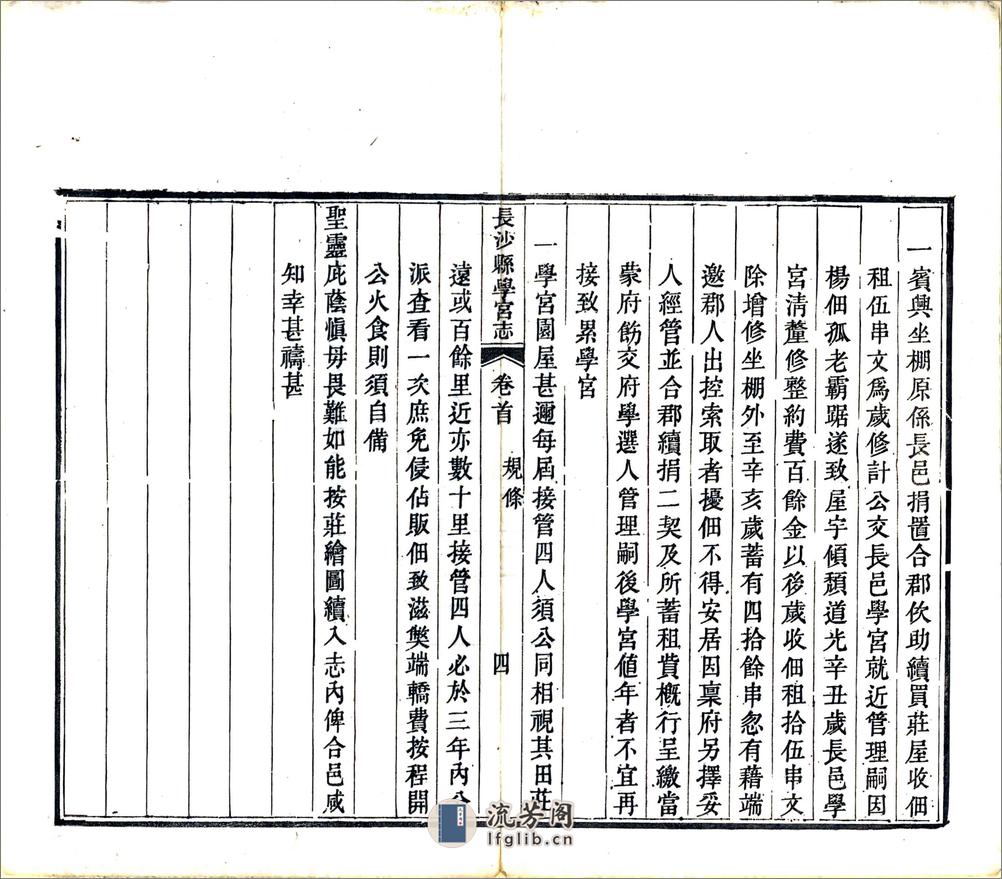 一賓興坐棚原係長邑捐置合郡佽助續買莊屋收佃
租伍串文爲歲修計公交長邑學宮就近管理嗣因
楊佃孤老霸踞遂致屋宇傾頹道光辛丑歲長邑學
宮清釐修整約費百餘金以後歲收佃租拾伍串文
除增修坐棚外至辛亥歲蓄有四拾餘串忽有藉端
邀郡人出控索取者擾佃不得安居因稟府另擇妥
人經管並合郡續捐二契及所蓄租貲概行呈繳當
蒙府飭交府學選人管理嗣後學宮値年者不宜再
接致累學宮
一學宮園屋甚邇每屆接管四人須公同相視其田莊
長沙縣學宮志 卷首 規條 四
遠或百餘里近亦數十里接管四人必於三年內公
派查看一次庶免侵佔販佃致滋獘端轎費按程開
公火食則須自備
聖靈庇蔭愼毋畏難如能按莊繪圖續入志內俾合邑咸
知幸甚禱甚
流芳阁
lfglib.cn